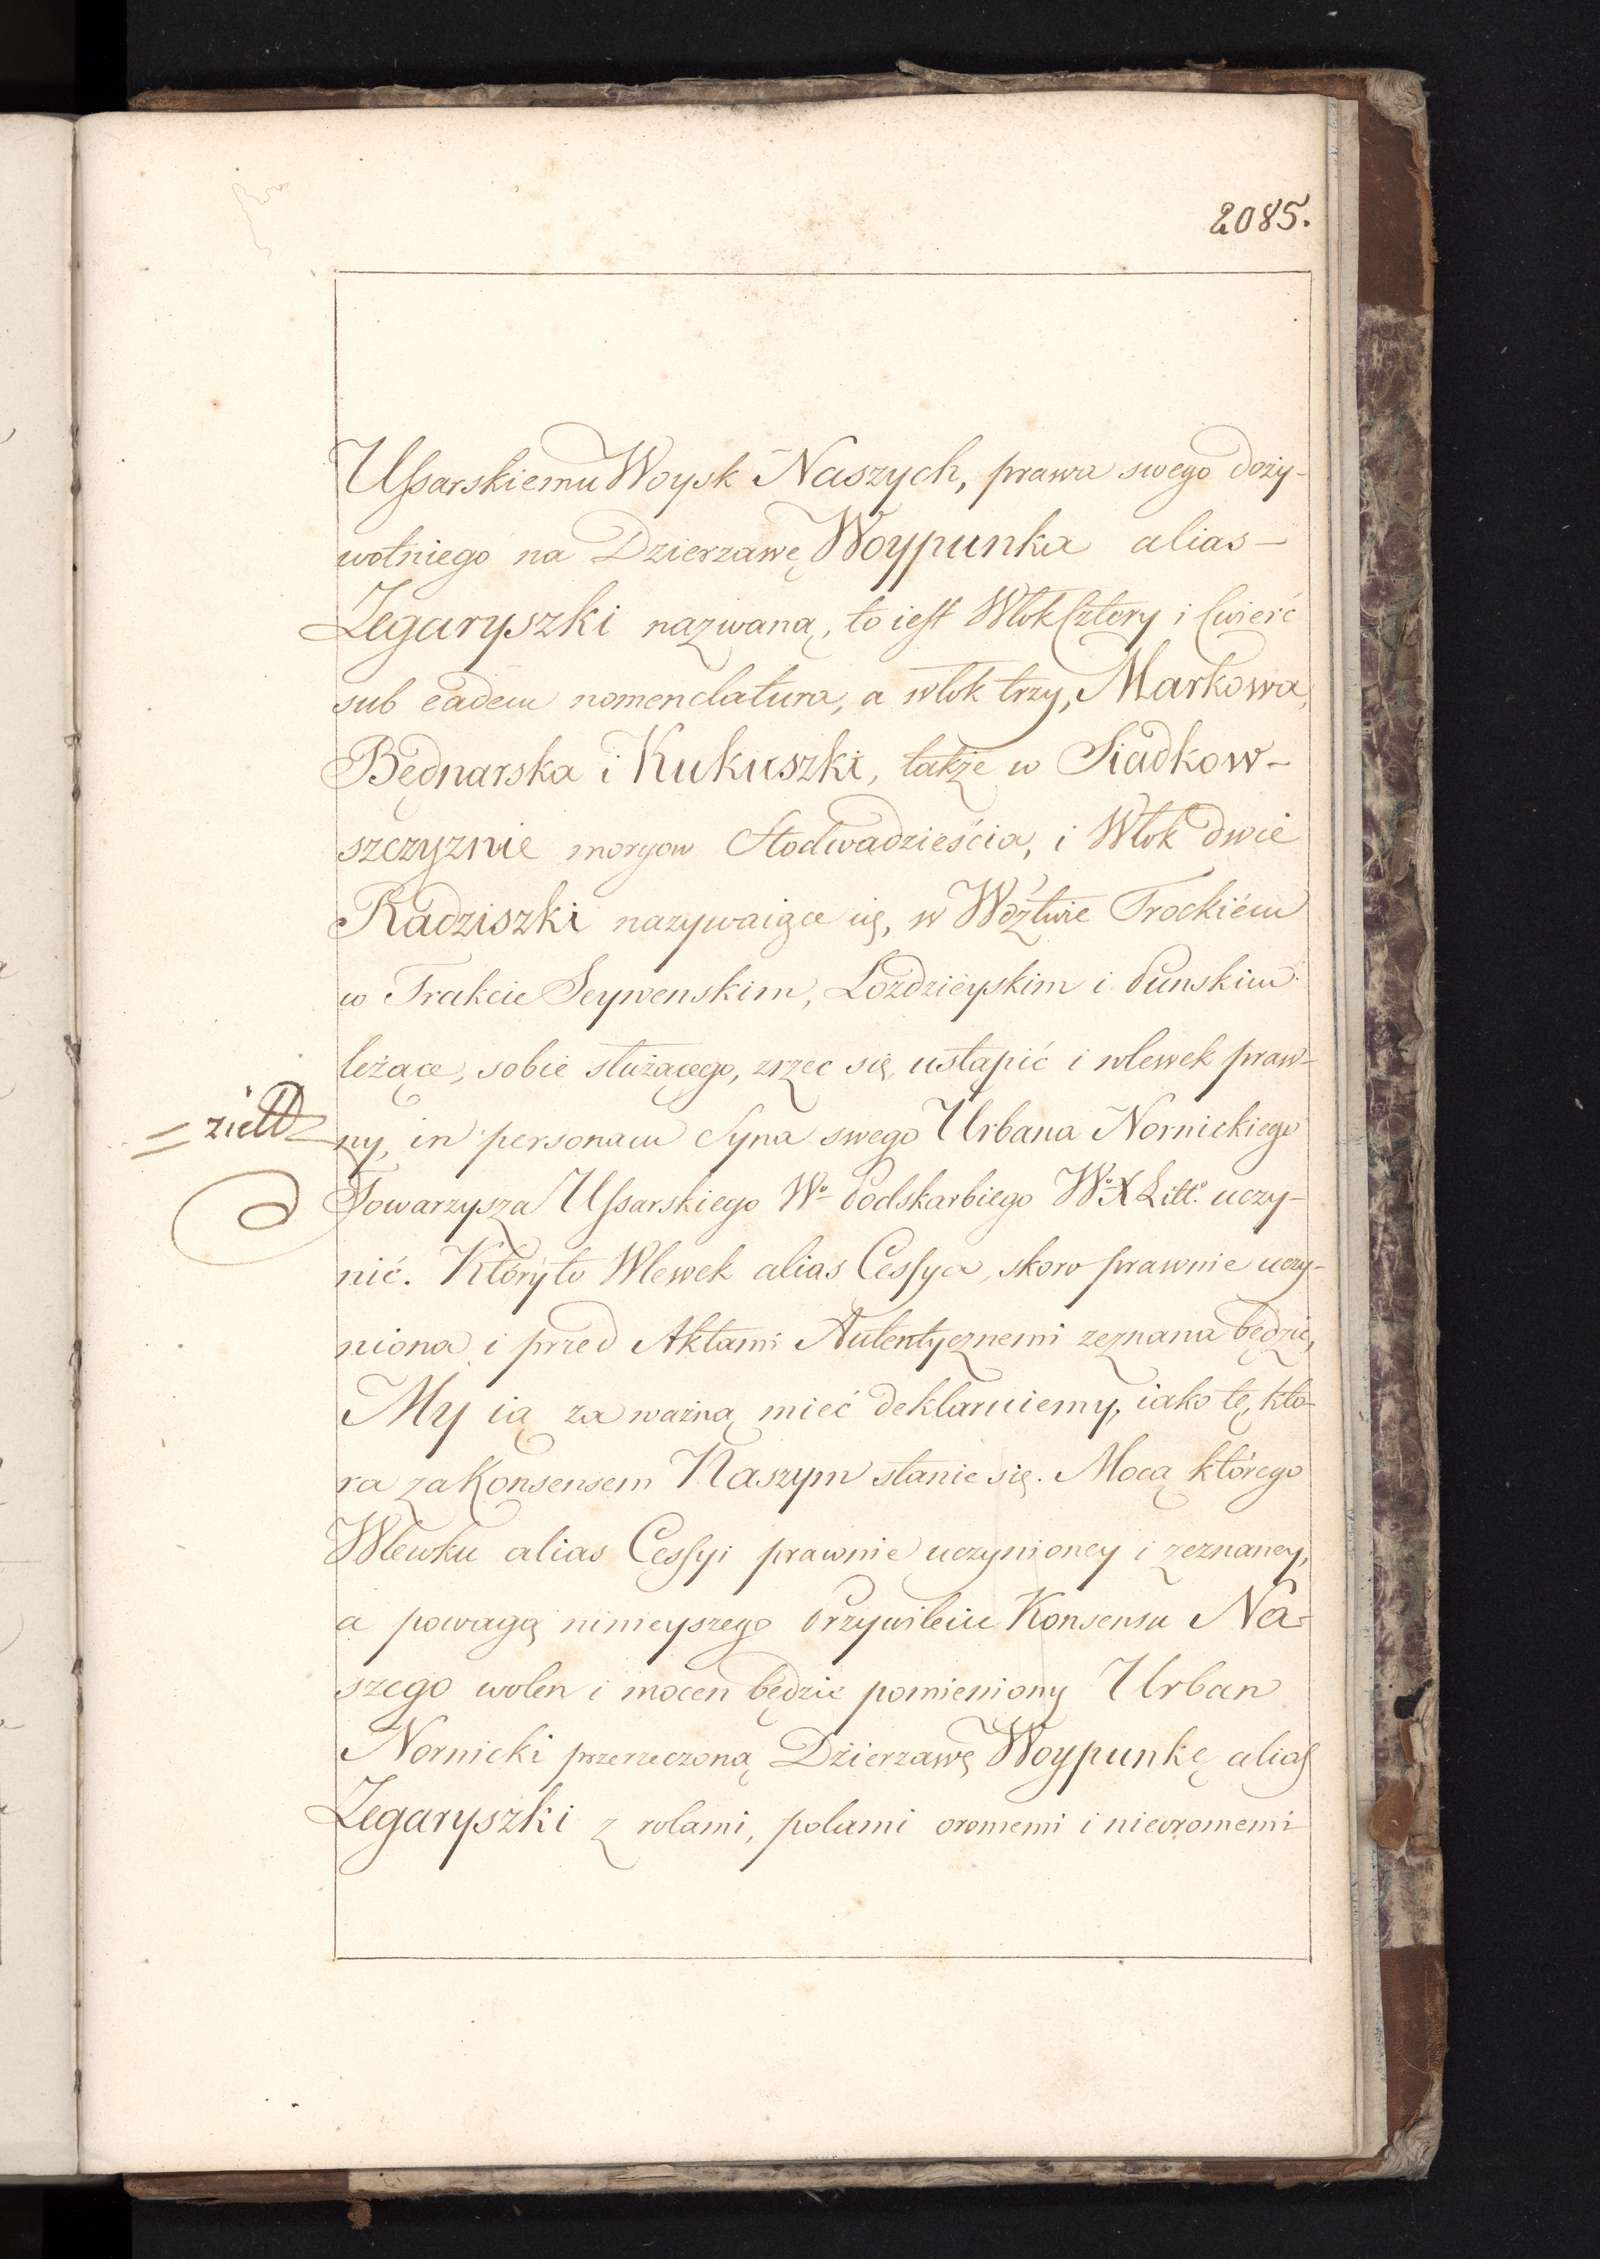 2085.
Ussarskiemu Woysk Naszych, prawa swego doży-
wotniego na Dzierzawę Woypunka alias -
Zegaryszki nazwaną, to iest Włok Cztery i Cwierć
sub eadem nomenclatura, a włok trzy, Markowa,
Będnarska i Kukuszki, także w Siadkow-
szczyznie morgow Stodwadzieścia, i Włok dwie
Radziszki nazywaiące się, w Wdztwie Trockiém
w Trakcie Seywenskim, Łoździéyskim i Punskim
leżące, sobie służącego, zrzec się, ustąpić i wlewek praw-
ny, in personam Syna swego Urbana Nornickiego
Towarzysza Ussarskiego Wo Podskarbiego Wo X Litto uczy-
nić. Któryto Wlewek alias Cessya, skoro prawnie uczy-
niona i przed Aktami Autentycznemi zeznana będzie,
My ią za ważną mieć deklaruiemy, iako tę, kto-
ra za Konsensem Naszym stanie się. Mocą którego
Wlewku alias Cessyi prawnie uczynioney i zeznaney,
a powagą ninieyszego Przywileiu Konsensu Na=
szego wolen i mocen będzie pomieniony Urban
Nornicki przerzeczoną Dzierzawę Woypunkę alias
Zegaryszki z rolami, polami oromemi i nieoromemi